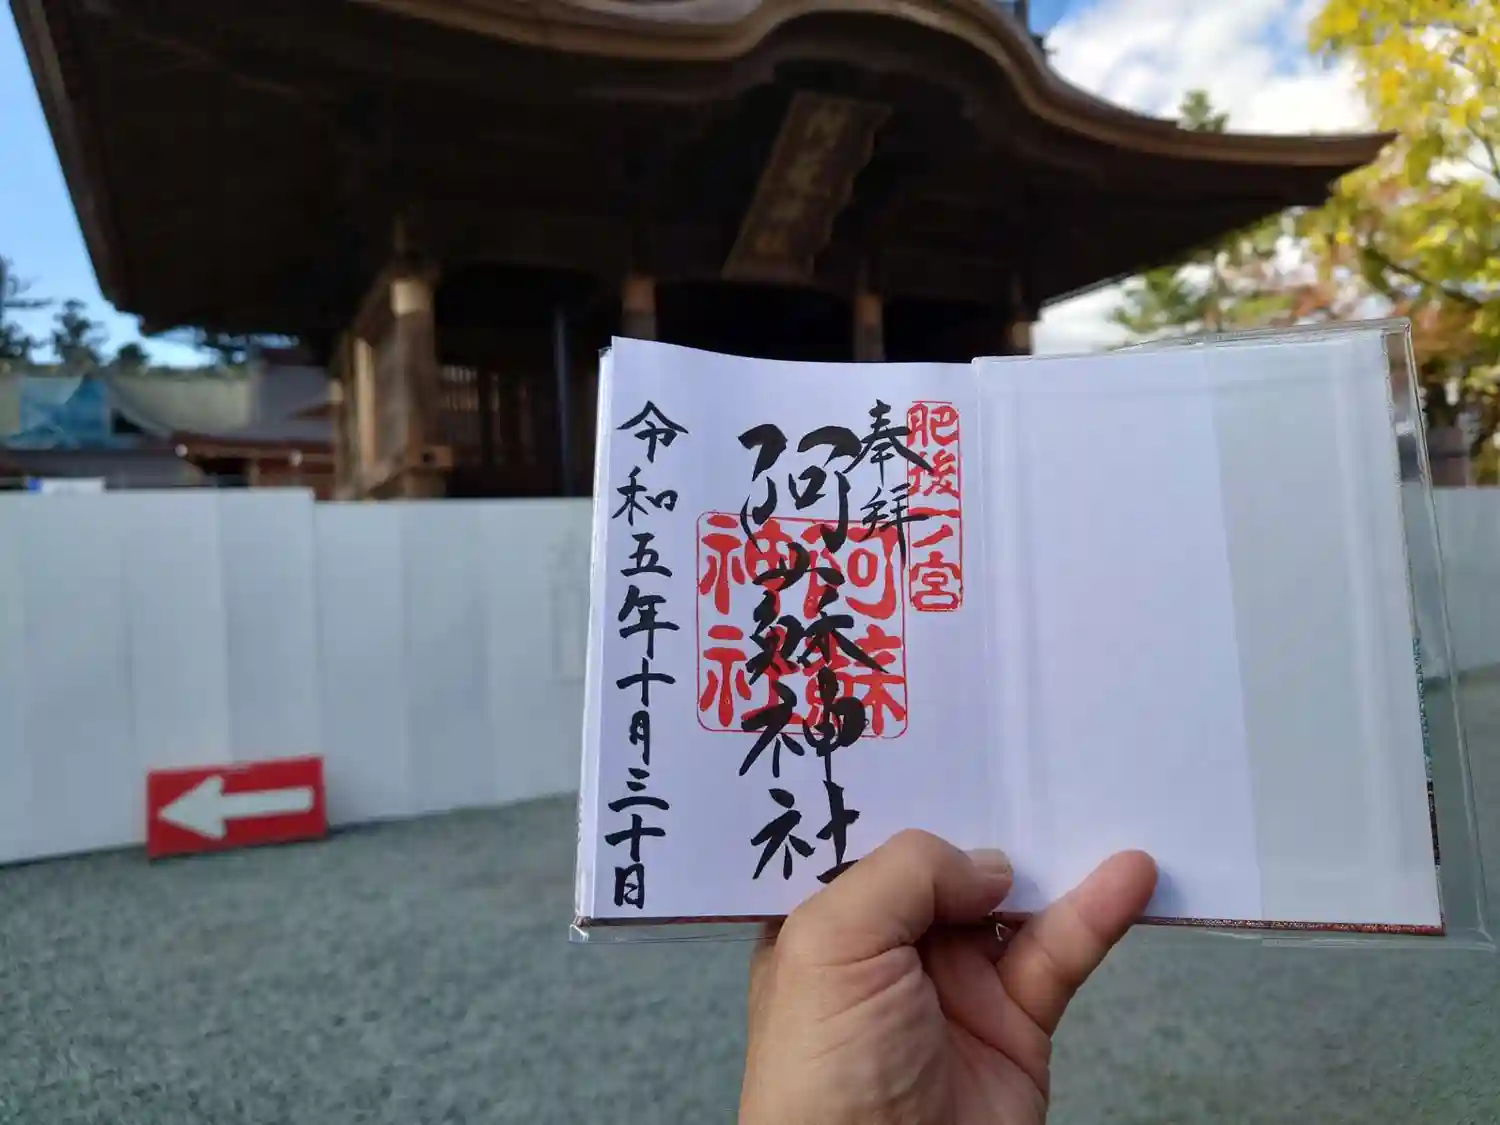 奉拝
肥後一ノ宮
阿蘇神社
阿蘇
神社
令和五年十月三十日